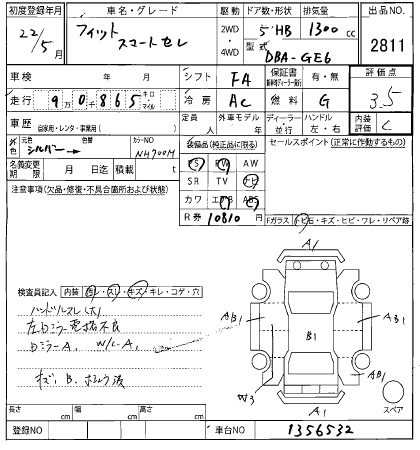 初度登録年月 車名・グレード 駆動 ドア数・形状 排気量 出品NO.
22/5月 フィット スマートセレ 2WD・4WD 5 HB 1300cc 2811
型式 DBA-GE6
車検 年 月 シフト FA 保証書 有・無 評価点
走行 9万0千865 キロ マイル 冷房 AC 燃料 G 3.5
車歴 自家用・レンタ・事業用( ) 定員 人 外車モデル 年 ディーラー・並行 ハンドル 左・右 内装評価 C
外色 元色 シルバー 色替 カラーNO NH700M 装備品(純正品に限る) セールスポイント(正常に作動するもの)
名義変更期限 月 日迄 積載 t PS PW AW
SR TV ナビ
注意事項(欠品・修復・不具合箇所および状態) カワ エアB ABS
R券 10810 円
Fガラス トビ石・キズ・ヒビ・ワレ・リペア跡
A1
検査員記入 内装 汚レ・スレ・キズ/キレ・コゲ・穴
ハンドルスレ(大)
左Dミラー電格不良
Dミラー A、W/L-A
キズ、B、
AB1
AB1
B1
W3
AB1
A1
スペア
長さ cm 幅 cm 高さ cm
登録NO 車台NO 1356532